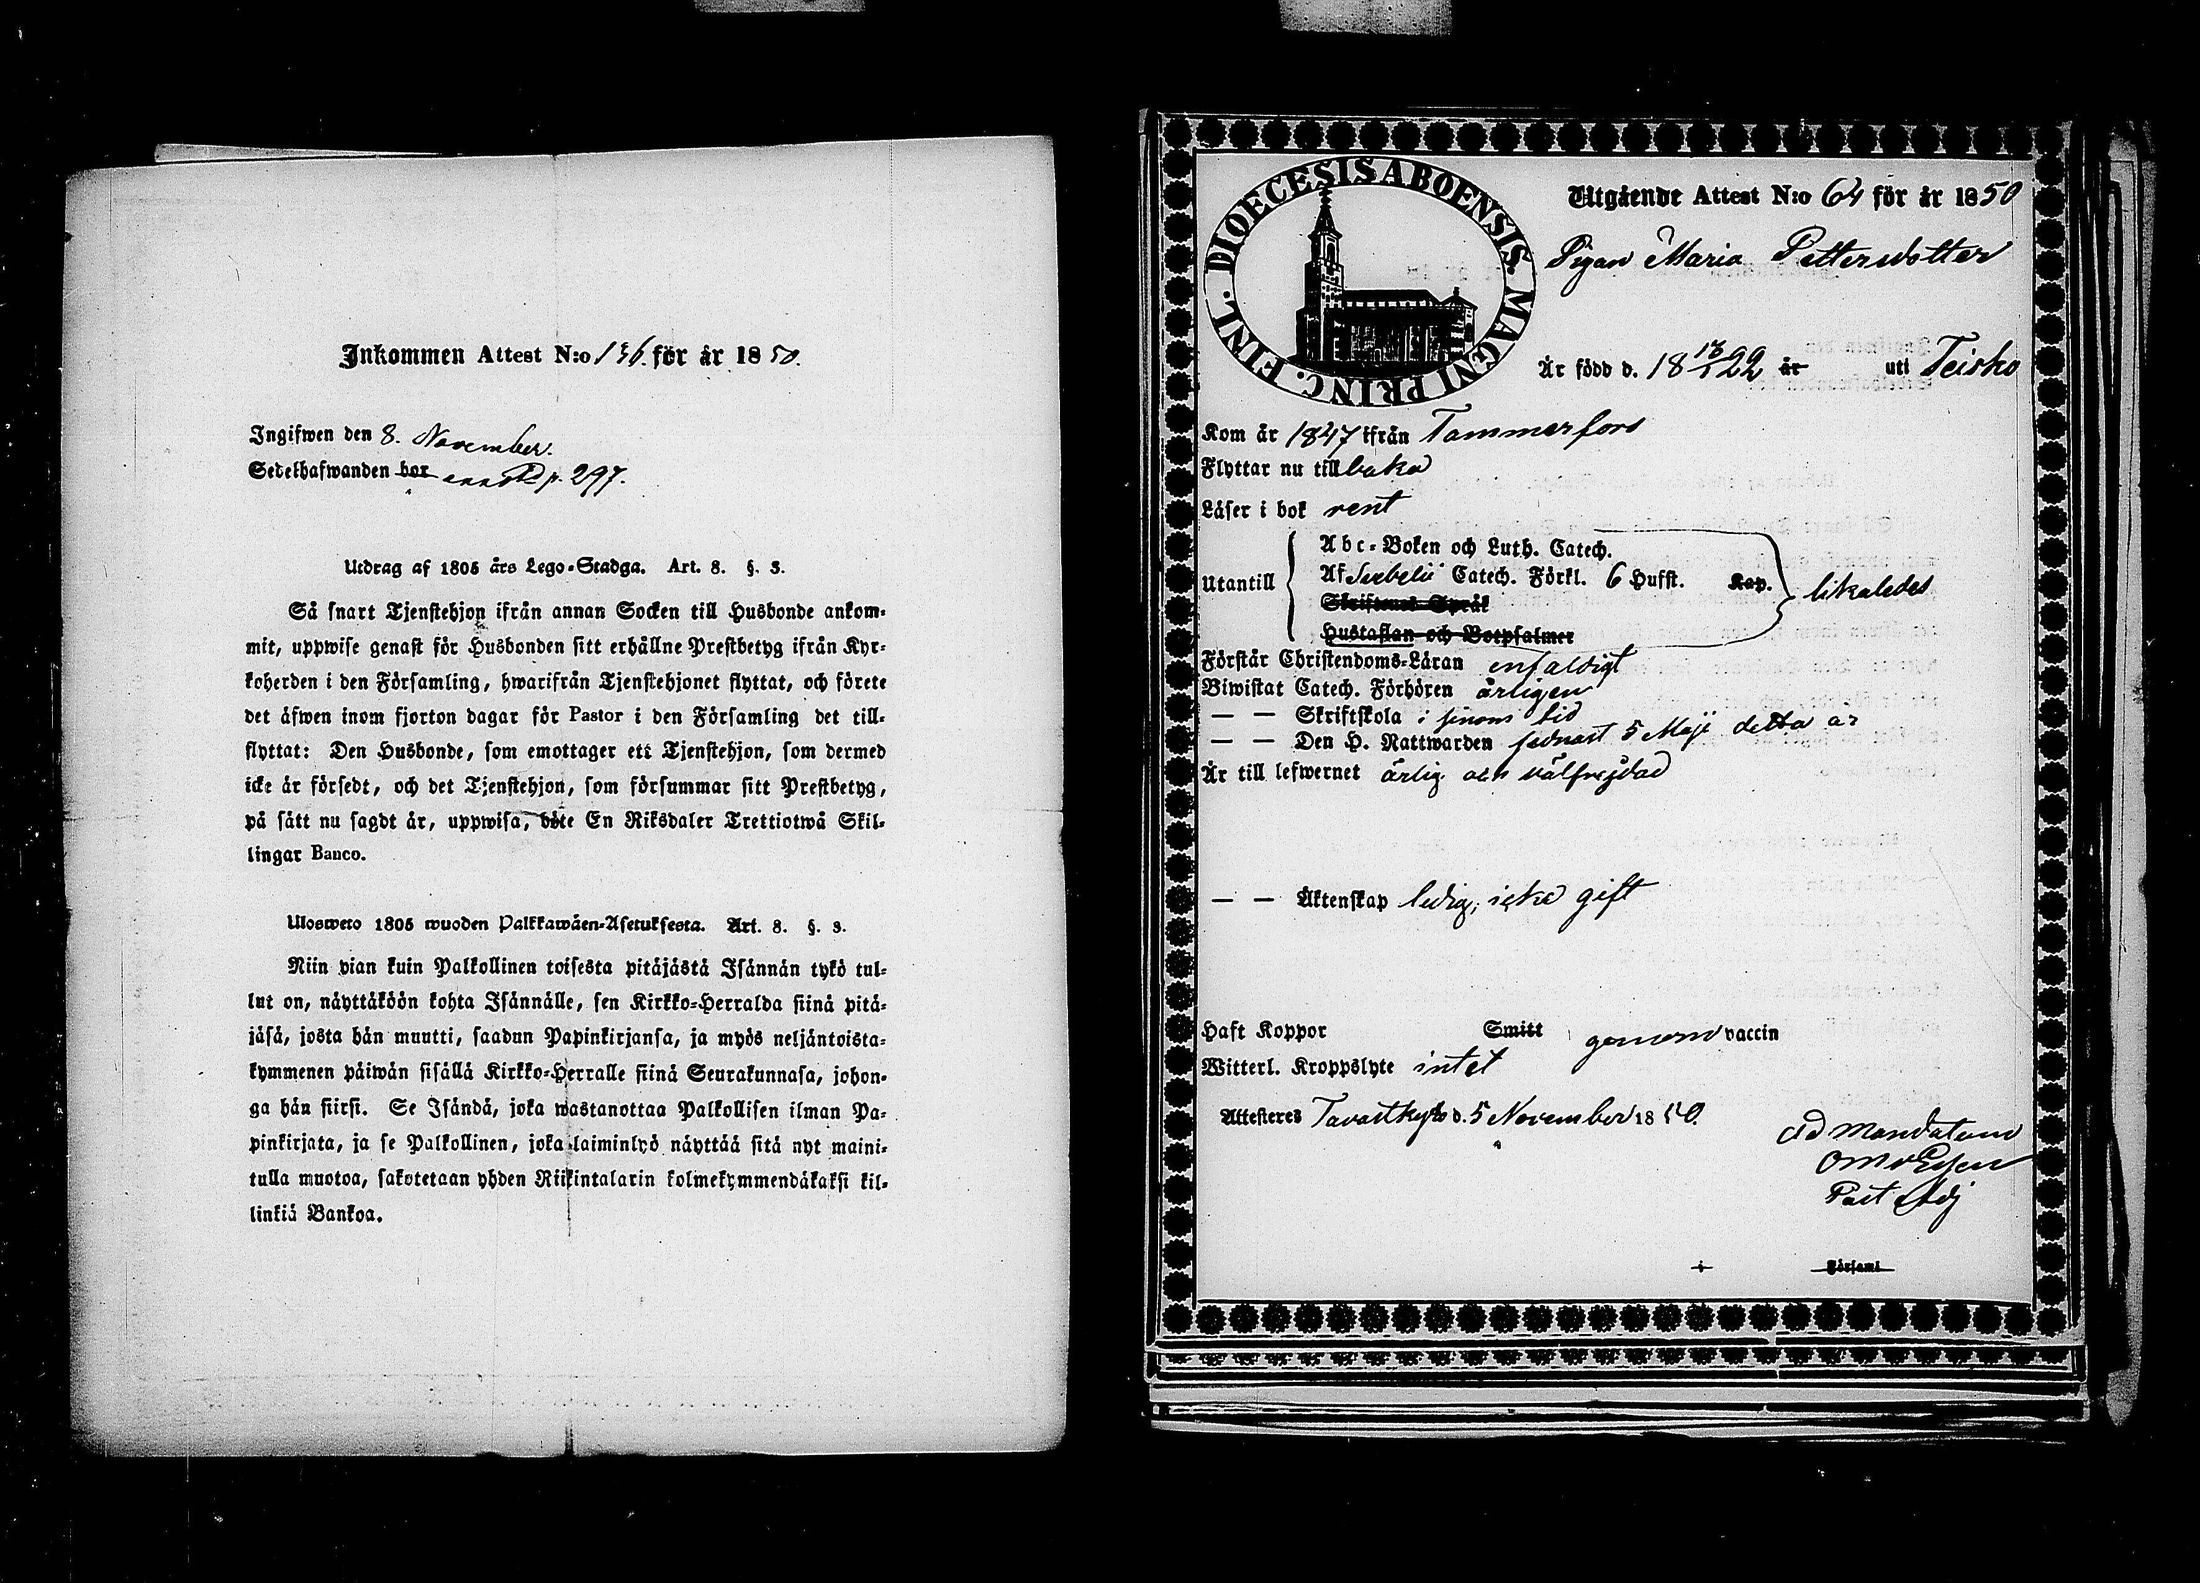 Inkommen Attest N:o 136. för år 1850.
Ingifwen den 8. November.
Sedelhafwanden bor p. 297.
Utdrag af 1805 års Lego-Stadga. Art. 8. §. 3.
Så snart Tjenstehjon ifrån annan Socken till Husbonde ankom-
mit, uppwise genast för Husbonden sitt erhållne Prestbetyg ifrån Kyr-
koherden i den Församling, hwarifrån Tjenstehjonet flyttat, och förete
det äfwen inom fjorton dagar för Pastor i den Församling det till-
flyttat: Den Husbonde, som emottager ett Tjenstehjon, som dermed
icke är försedt, och det Tjenstehjon, som försummar sitt Prestbetyg,
på sätt nu sagdt är, uppwisa, böte En Riksdaler Trettiotwå Skil-
lingar Banco.
Ulosweto 1805 wuoden Palkkawäen-Asetuksesta. Art. 8. §. 3.
Niin pian kuin Palkollinen toisesta pitäjästä Isännän tykö tul-
lut on, näyttäköön kohta Isännälle, sen Kirkko-Herralda siinä pitä-
jäsä, josta hän muutti, saadun Papinkirjansa, ja myös neljäntoista-
kymmenen päiwän sisällä Kirkko-Herralle siinä Seurakunnasa, johon-
ga hän siirsi. Se Isändä, joka wastanottaa Palkollisen ilman Pa-
pinkirjata, ja se Palkollinen, joka laiminlyö näyttää sitä nyt maini-
tulla muotoa, sakotetaan yhden Riikintalarin kolmekymmendäkaksi kil-
linkiä Bankoa.
DIOECESIS ABOENSIS. MAGNI PRINC. FINL.
Utgående Attest N:o 64 för år 1850
Pigan Maria Pettersdotter
Är född d. 18 13/1 22 år uti Teisko
Kom år 1847 ifrån Tammerfors
Flyttar nu tillbaka
Läser i bok rent
Utantill
Abc-Boken och Luth. Catech.
Af Svebelii Catech. Förkl. 6 Hufst. Kap. likaledes
Skriftenes Språk
Hustaflan och Botpsalmer
Förstår Christendoms-Läran enfaldigt
Biwistat Catech. Förhören årligen
— — Skriftskola i sinom tid
— — Den H. Nattwarden sednast 5 Maji detta år
Är till lefwernet ärlig och välfrejdad
— — Äktenskap ledig, icke gift
Haft Koppor Smitt genom vaccin
Witterl. Kroppslyte intet
Attesteres Tavastkyro d. 5 November 1850.
Ad mandatum
Past Adj
i Församl